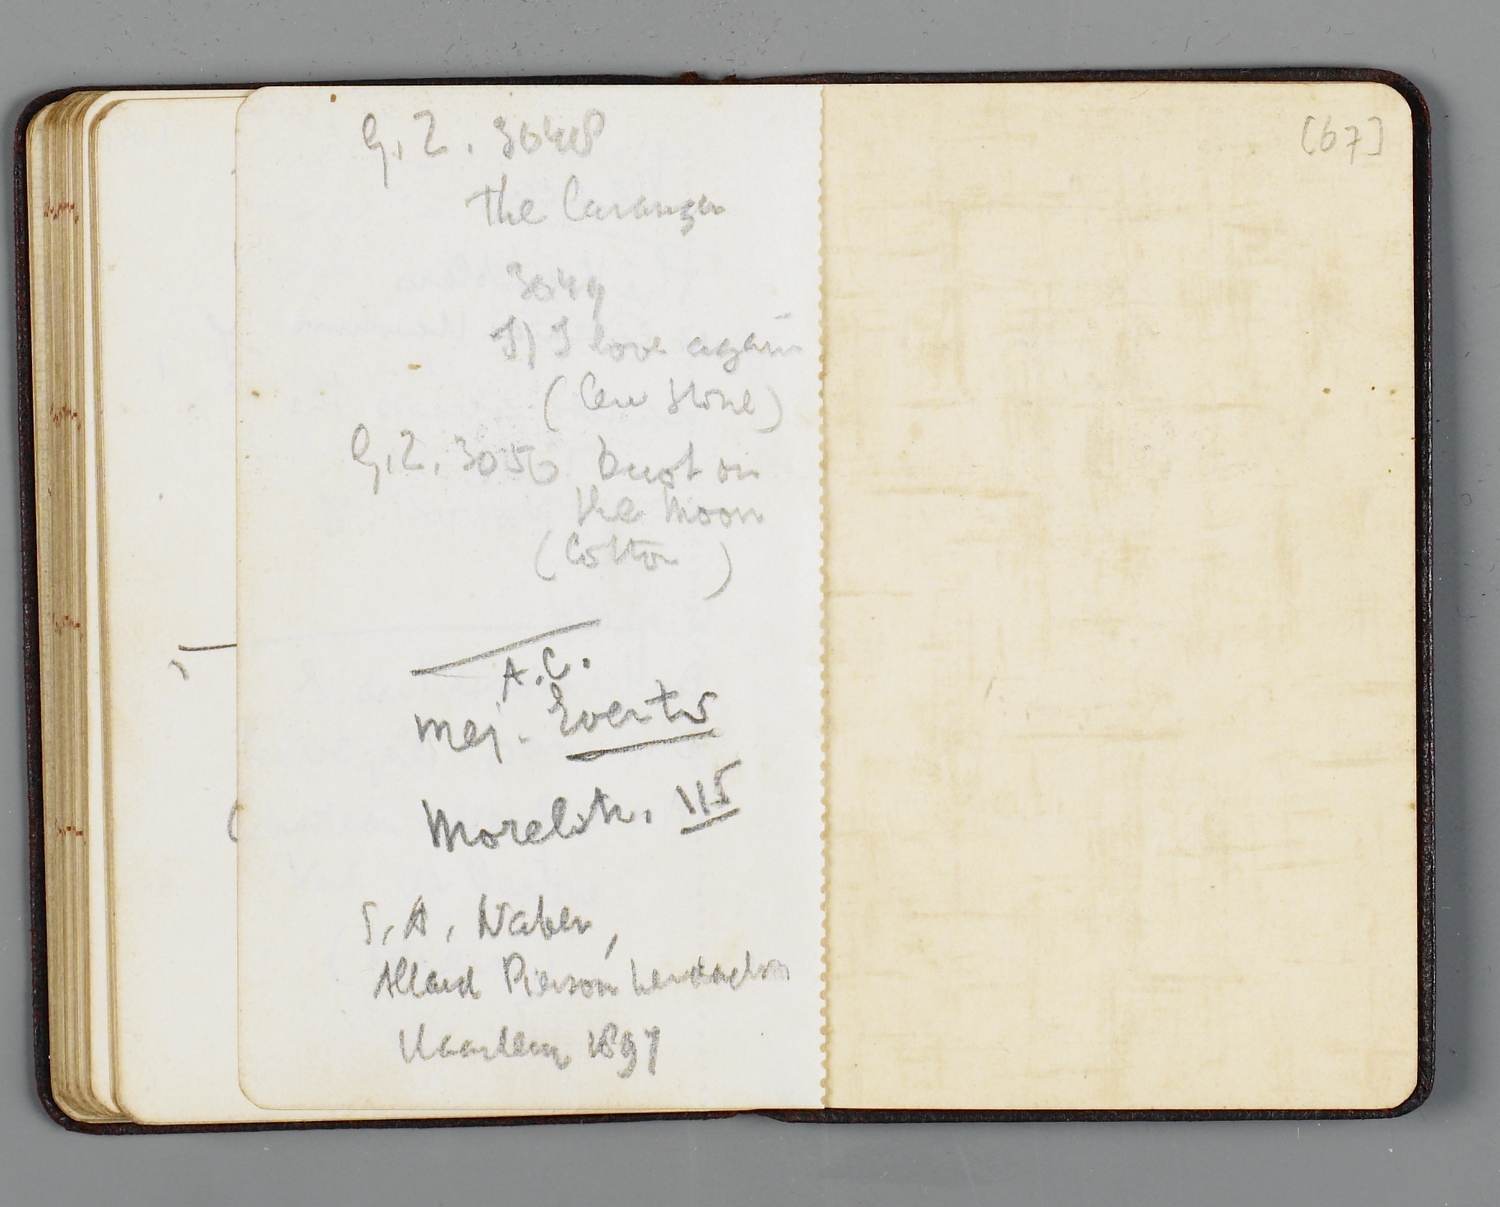 G.Z. 3048
the Carangen
3049
I) I love again
(Lew Stone)
G.Z. 3050 Dust on
the Moon
(Cotton)
A.C.
mej. Everts
Morelstr. 115
S.A. Naber,
Allard Pierson herdacht
Haarlem 1897
[67]